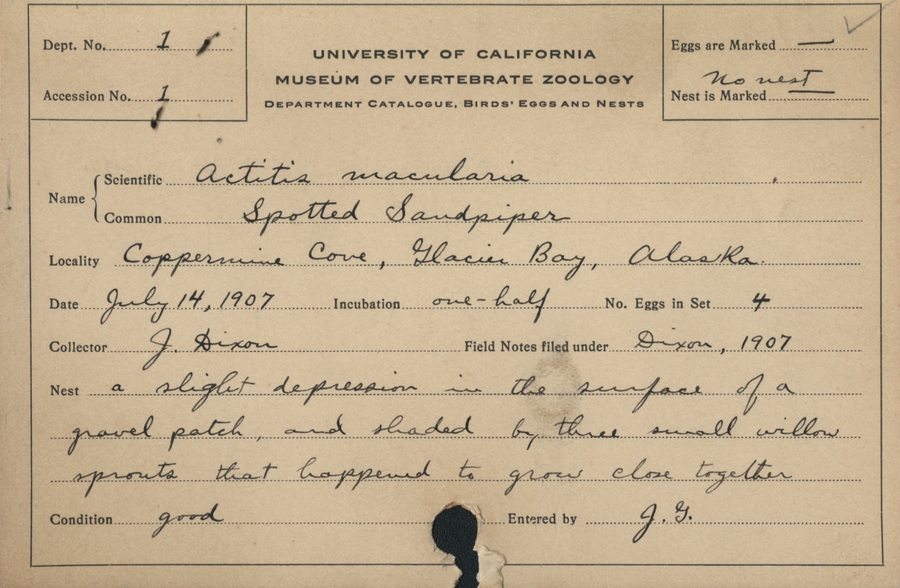 Dept. No. 1
UNIVERSITY OF CALIFORNIA
MUSEUM OF VERTEBRATE ZOOLOGY
DEPARTMENT CATALOGUE, BIRDS' EGGS AND NESTS
Accession No. 1
Eggs are Marked —
No nest
Nest is Marked —
Name
Scientific Actitis macularia
Common Spotted Sandpiper
Locality Coppermine Cove, Glacier Bay, Alaska.
Date July 14, 1907 Incubation one-half No. Eggs in Set 4
Collector J. Dixon Field Notes filed under Dixon, 1907
Nest a slight depression in the surface of a
gravel patch, and shaded by three small willow
sprouts that happened to grow close together
Condition good Entered by J. G.